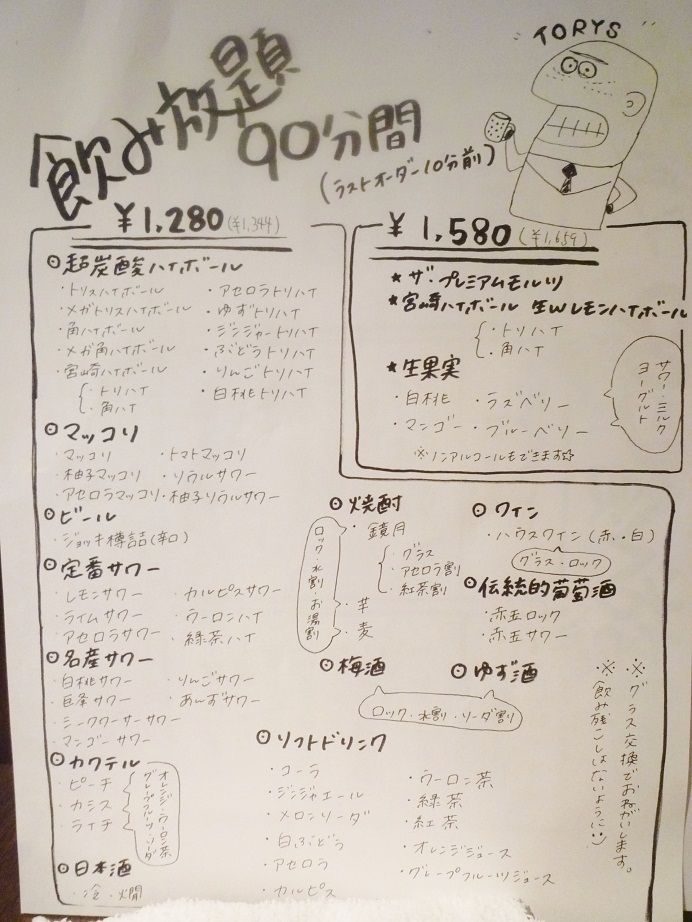 TORYS
飲み放題
90分間
(ラストオーダー10分前)
¥1,280(¥1,344)
◎超炭酸ハイボール
・トリスハイボール
・メガトリスハイボール
・角ハイボール
・メガ角ハイボール
・宮崎ハイボール
・トリハイ
・角ハイ
・アセロラトリハイ
・ゆずトリハイ
・ジンジャートリハイ
・ぶどうトリハイ
・りんごトリハイ
・白桃トリハイ
◎マッコリ
・マッコリ
・柚子マッコリ
・アセロラマッコリ
・トマトマッコリ
・ソウルサワー
・柚子ソウルサワー
◎ビール
・ジョッキ樽詰(辛口)
◎定番サワー
・レモンサワー
・ライムサワー
・アセロラサワー
・カルピスサワー
・ウーロンハイ
・緑茶ハイ
◎名産サワー
・白桃サワー
・巨峰サワー
・シークワーサーサワー
・マンゴーサワー
・りんごサワー
・あんずサワー
◎カクテル
・ピーチ
・カシス
・ライチ
オレンジ・ウーロン茶
グレープフルーツ・ソーダ
◎日本酒
・冷・燗
¥1,580(¥1,659)
★ザ・プレミアムモルツ
★宮崎ハイボール 生Wレモンハイボール
・トリハイ
・角ハイ
★生果実
・白桃
・マンゴー
・ラズベリー
・ブルーベリー
サワー・ミルク
ヨーグルト
※ノンアルコールもできます☆
◎焼酎
・鏡月
・グラス
・アセロラ割
・紅茶割
・芋
・麦
ロック・水割・お湯割
◎ワイン
・ハウスワイン(赤・白)
グラス・ロック
◎伝統的葡萄酒
・赤玉ロック
・赤玉サワー
◎梅酒
◎ゆず酒
ロック・水割・ソーダ割
◎ソフトドリンク
・コーラ
・ジンジャエール
・メロンソーダ
・白ぶどう
・アセロラ
・カルピス
・ウーロン茶
・緑茶
・紅茶
・オレンジジュース
・グレープフルーツジュース
※グラス交換でおねがいします。
※飲み残しはないように